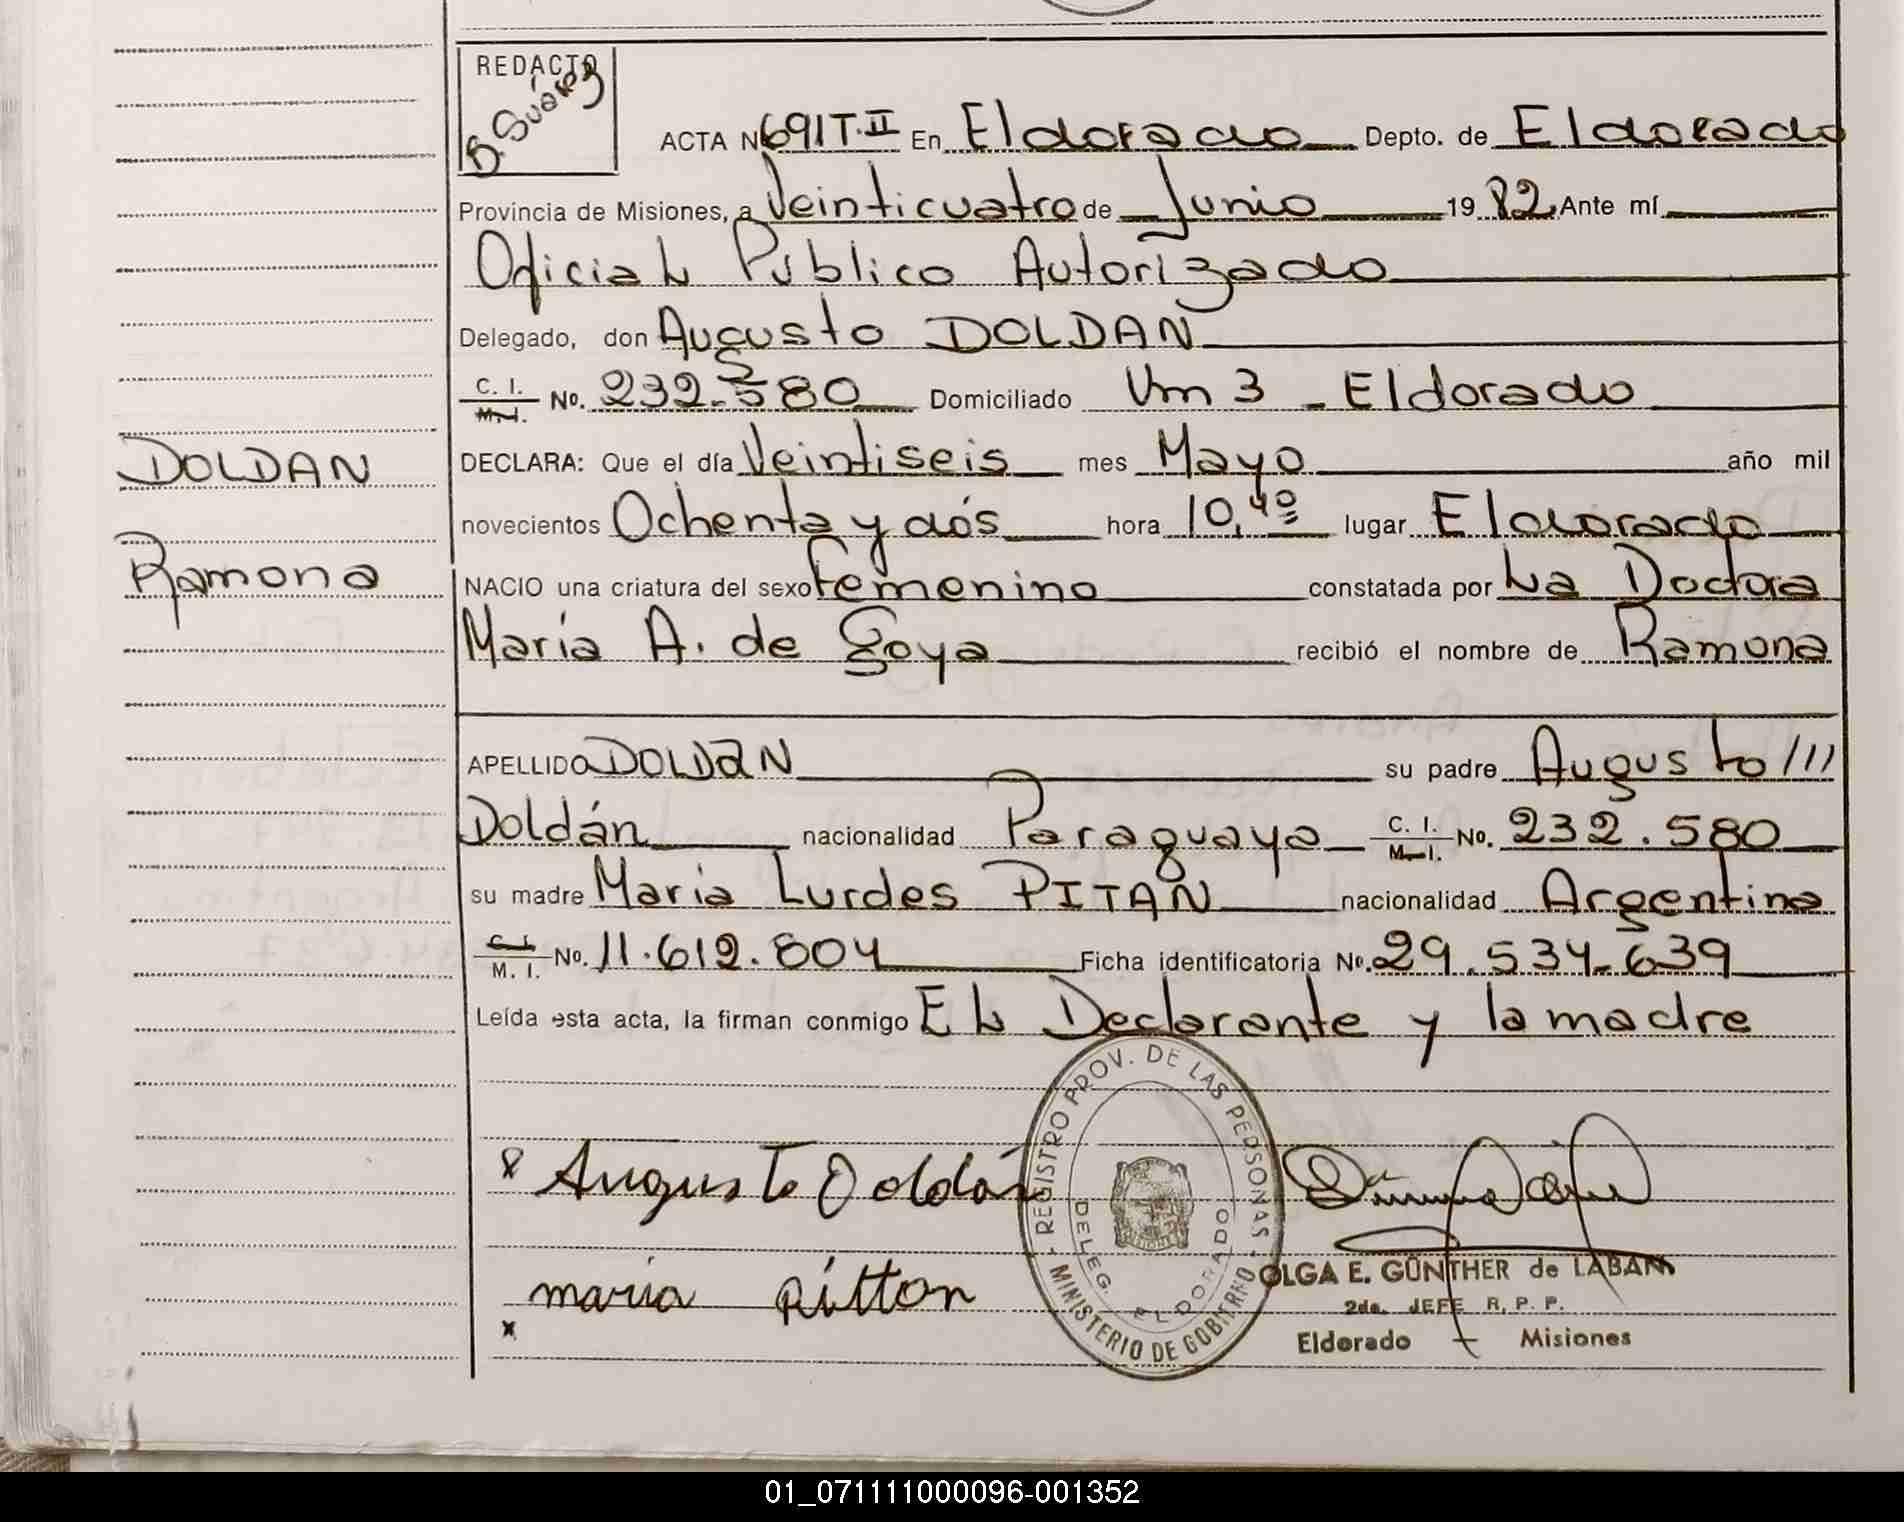 REDACTO
B. Suárez
ACTA N 691 T. II En Eldorado Depto. de Eldorado
Provincia de Misiones, a Veinticuatro de Junio 19 82 Ante mí
Oficial Público Autorizado
Delegado, don Augusto DOLDAN
C. I. M. I. No. 232.580 Domiciliado Km 3 - Eldorado
DOLDAN
DECLARA: Que el día Veintiseis mes Mayo año mil
novecientos Ochenta y dós hora 10,40 lugar Eldorado
Ramona
NACIO una criatura del sexo Femenino constatada por La Doctora
María A. de Goya recibió el nombre de Ramona
APELLIDO DOLDAN su padre Augusto ///
Doldán nacionalidad Paraguaya C. I. M. I. No. 232.580
su madre Maria Lurdes PITAN nacionalidad Argentina
C. I. M. I. No. 11.612.804 Ficha identificatoria No. 29.534.639
Leída esta acta, la firman conmigo El Declarante y la madre
Augusto Doldán
maria Pitton
REGISTRO PROV. DE LAS PERSONAS
MINISTERIO DE GOBIERNO
DELEG. ELDORADO
OLGA E. GÜNTHER de LABAM
2da. JEFE R. P. P.
Eldorado Misiones
01_071111000096-001352